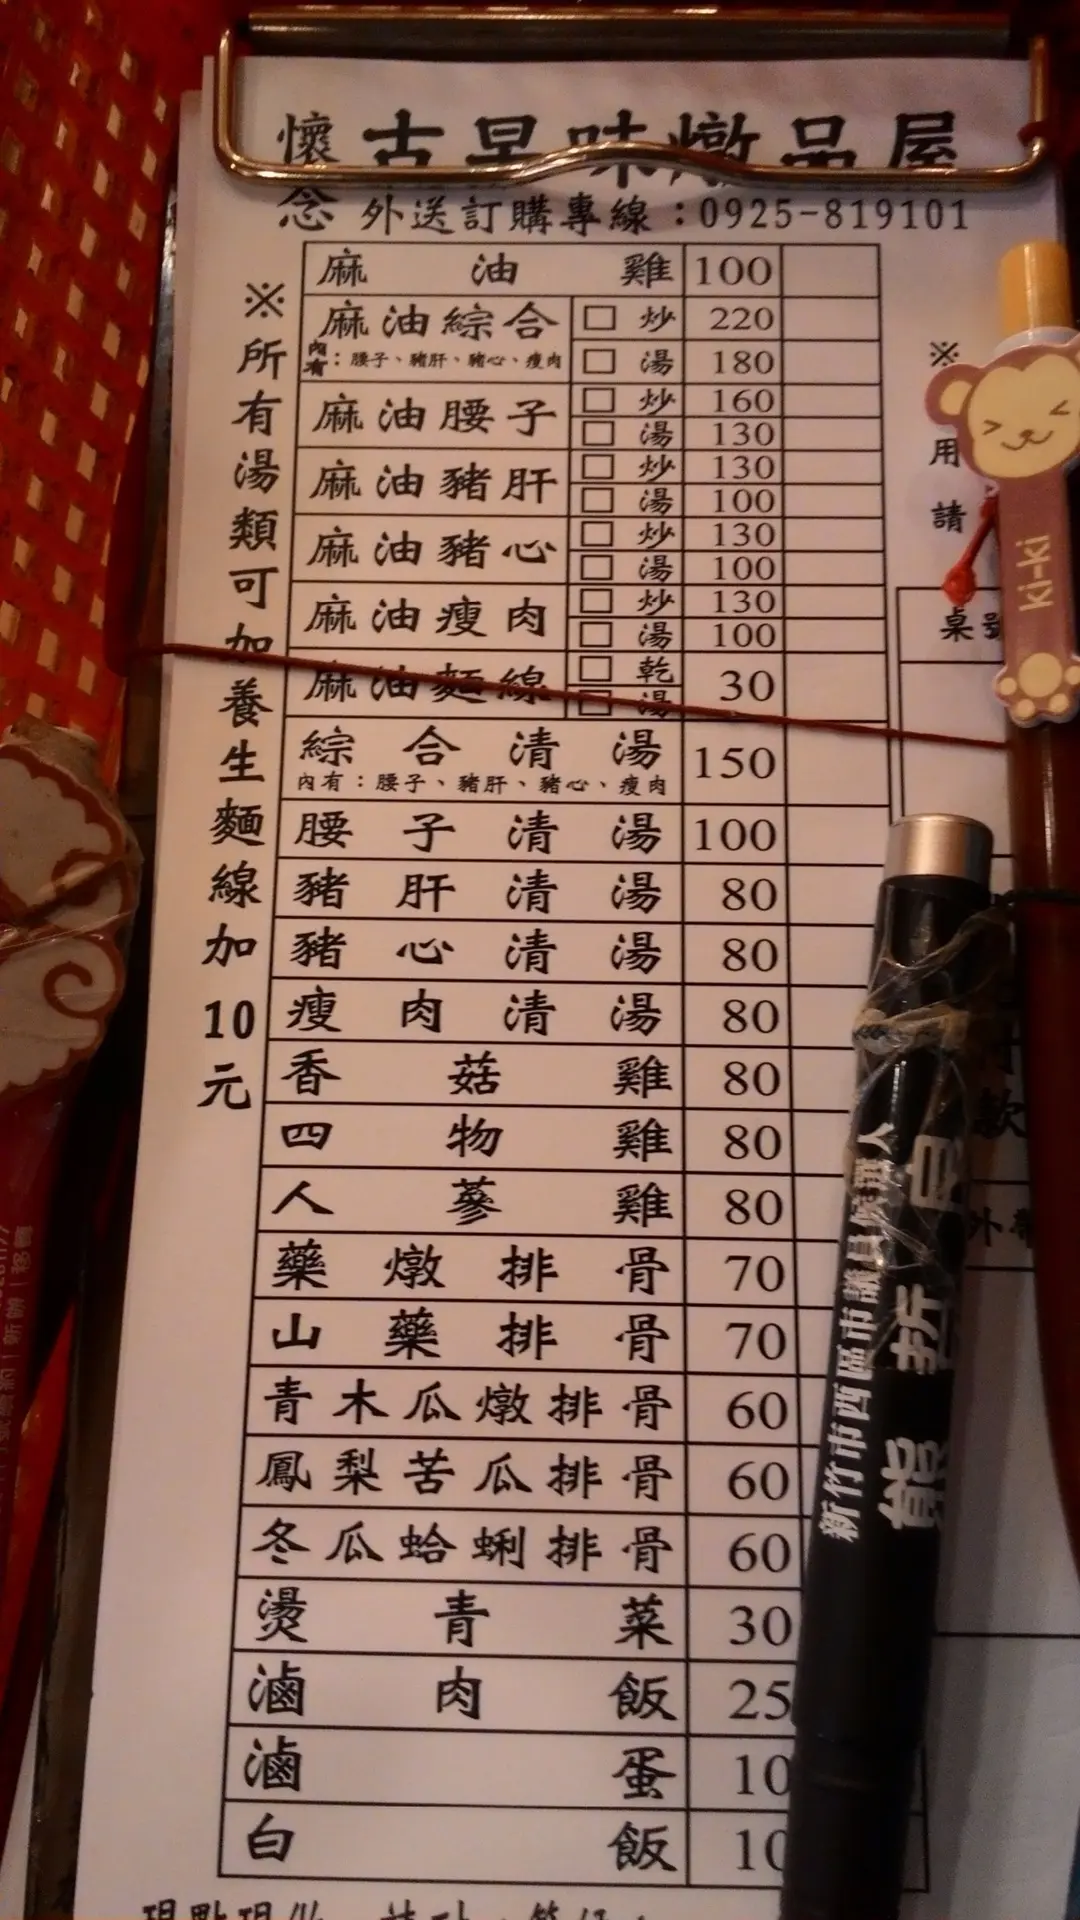 懷念 古早味燉品屋
外送訂購專線：0925-819101
※所有湯類可加養生麵線加10元
麻油雞 100
麻油綜合 □炒 220
內有：腰子、豬肝、豬心、瘦肉 □湯 180
麻油腰子 □炒 160
□湯 130
麻油豬肝 □炒 130
□湯 100
麻油豬心 □炒 130
□湯 100
麻油瘦肉 □炒 130
□湯 100
麻油麵線 □乾 30
□湯
綜合清湯 150
內有：腰子、豬肝、豬心、瘦肉
腰子清湯 100
豬肝清湯 80
豬心清湯 80
瘦肉清湯 80
香菇雞 80
四物雞 80
人蔘雞 80
藥燉排骨 70
山藥排骨 70
青木瓜燉排骨 60
鳳梨苦瓜排骨 60
冬瓜蛤蜊排骨 60
燙青菜 30
滷肉飯 25
滷蛋 10
白飯 10
※
用
請
桌號
ki-ki
新竹市西區市議員候選人
熊